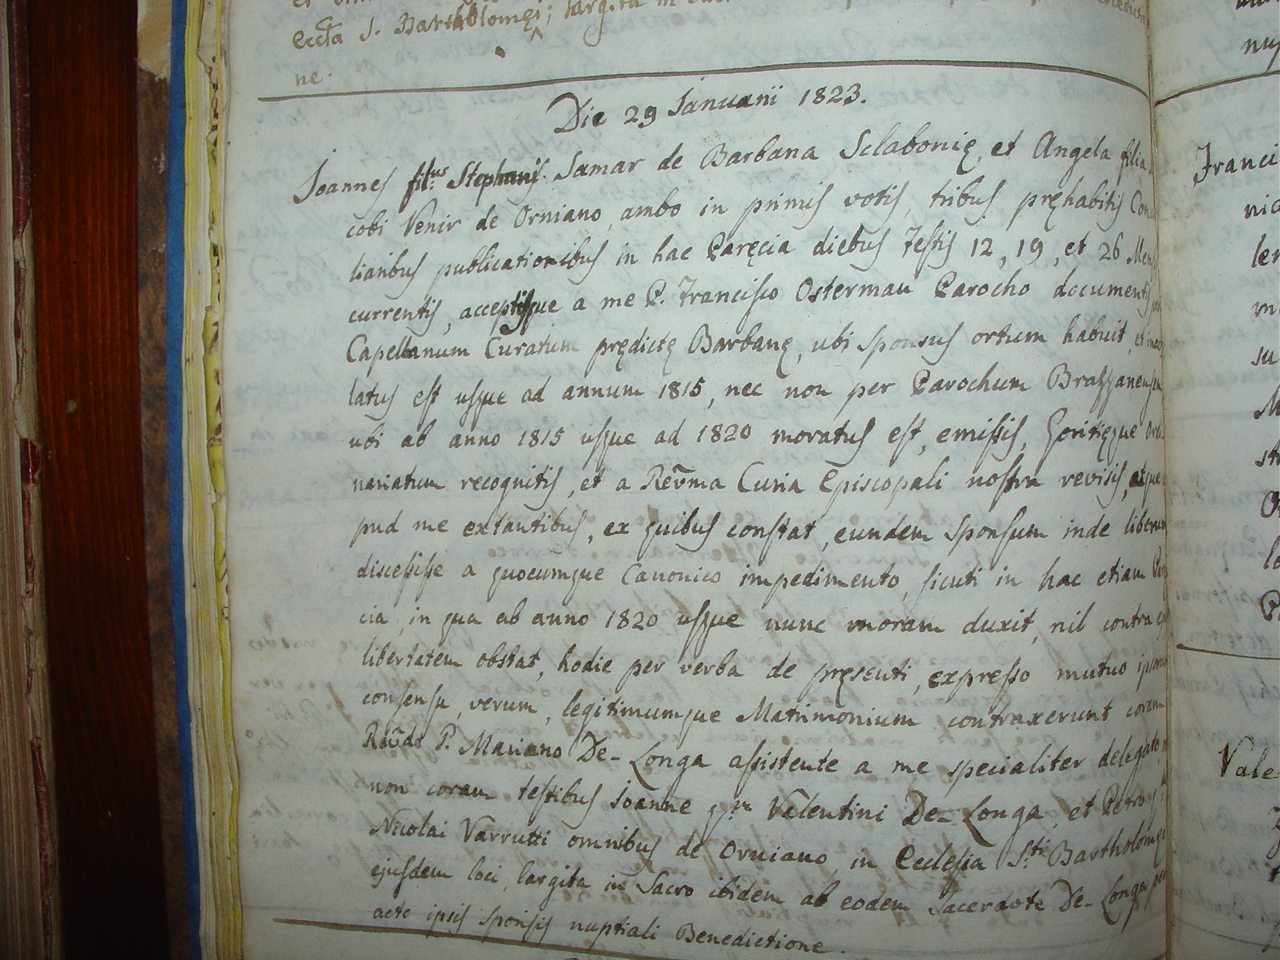 Eccta S. Bartholomęi; largita in
ne.
Die 29 Januarii 1823.
Joannes filius Stephani Samar de Barbana Sclabonię, et Angela filia
cobi Venir de Orniano, ambo in primis votis, tribus pręhabitis Con
liaribus publicationibus in hac Paręcia diebus Festis 12, 19, et 26 Men
currentis, acceptisque a me P. Francisco Osterman Parocho documentis
Capellanum Curatum prędictę Barbanę, ubi sponsus ortum habuit, et
latus est usque ad annum 1815, nec non per Parochum Brazzanen
ubi ab anno 1815 usque ad 1820 moratus est, emissis, Goritięque Ordi
nariatum recognitis, et a Rev̄ma Curia Episcopali nostra revisis, atque
pud me extantibus, ex quibus constat, eundem sponsum inde liberum
discessisse a quocumque Canonico impedimento, sicuti in hac etiam Parę
cia, in qua ab anno 1820 usque nunc moram duxit, nil contra
libertatem obstat, hodie per verba de pręsenti, expresso mutuo
consensu, verum, legitimumque Matrimonium contraxerunt coram
Rev̄do P. Mariano De-Longa assistente a me specialiter delegato
non coram testibus Joanne qm Valentini De-Longa, et Petro
Nicolai Varrutti omnibus de Orniano, in Ecclesia Sti Bartholomęi
ejusdem loci, largita in Sacro ibidem ab eodem Sacerdote De-Longa per
acto ipsis sponsis nuptiali Benedictione.
nup
Franci
nia
ler
su
M
Vale